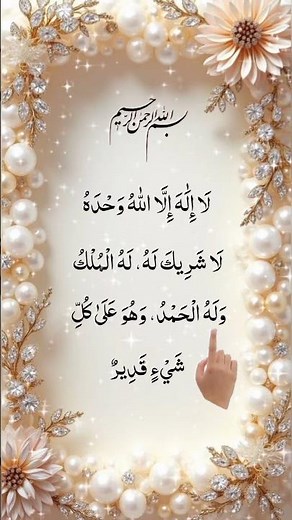 بسم الله الرحمن الرحيم
لَا إِلَٰهَ إِلَّا اللهُ وَحْدَهُ
لَا شَرِيكَ لَهُ، لَهُ الْمُلْكُ
وَلَهُ الْحَمْدُ، وَهُوَ عَلَىٰ كُلِّ
شَيْءٍ قَدِيرٌ